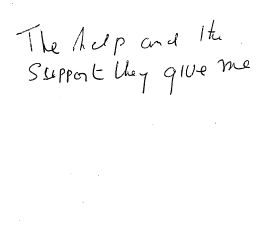 The help and the
Support they give me